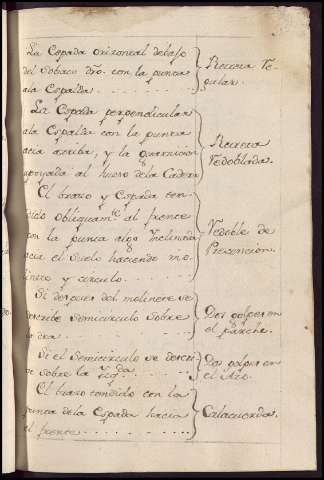 La Espada orizontal debajo
del Sobaco dro. con la punta
ala Espalda. . . . . . . . . .
Receta Re-
gular.
La Espada perpendicular
ala Espalda con la punta
acia arriba, y la guarnicion
apoyada al hueso dela Cadera
Receta
Redoblada.
El brazo y Espada ten-
dido obliquamte. al frente
con la punta algo Inclinada
acia el Suelo haciendo mo-
linete y circulo. . . . . . .
Redoble de
Prevencion.
Si despues del molinete se
describe semicirculo sobre
la dra. . . . . . . . . . .
Dos golpes en
el parche.
Si el Semicirculo se descri-
be sobre la Yzqda. . . . . .
Dos golpes en
el Aro.
El brazo tendido con la
punta dela Espada hacia
el frente. . . . . . . . . .
Calacuerda.